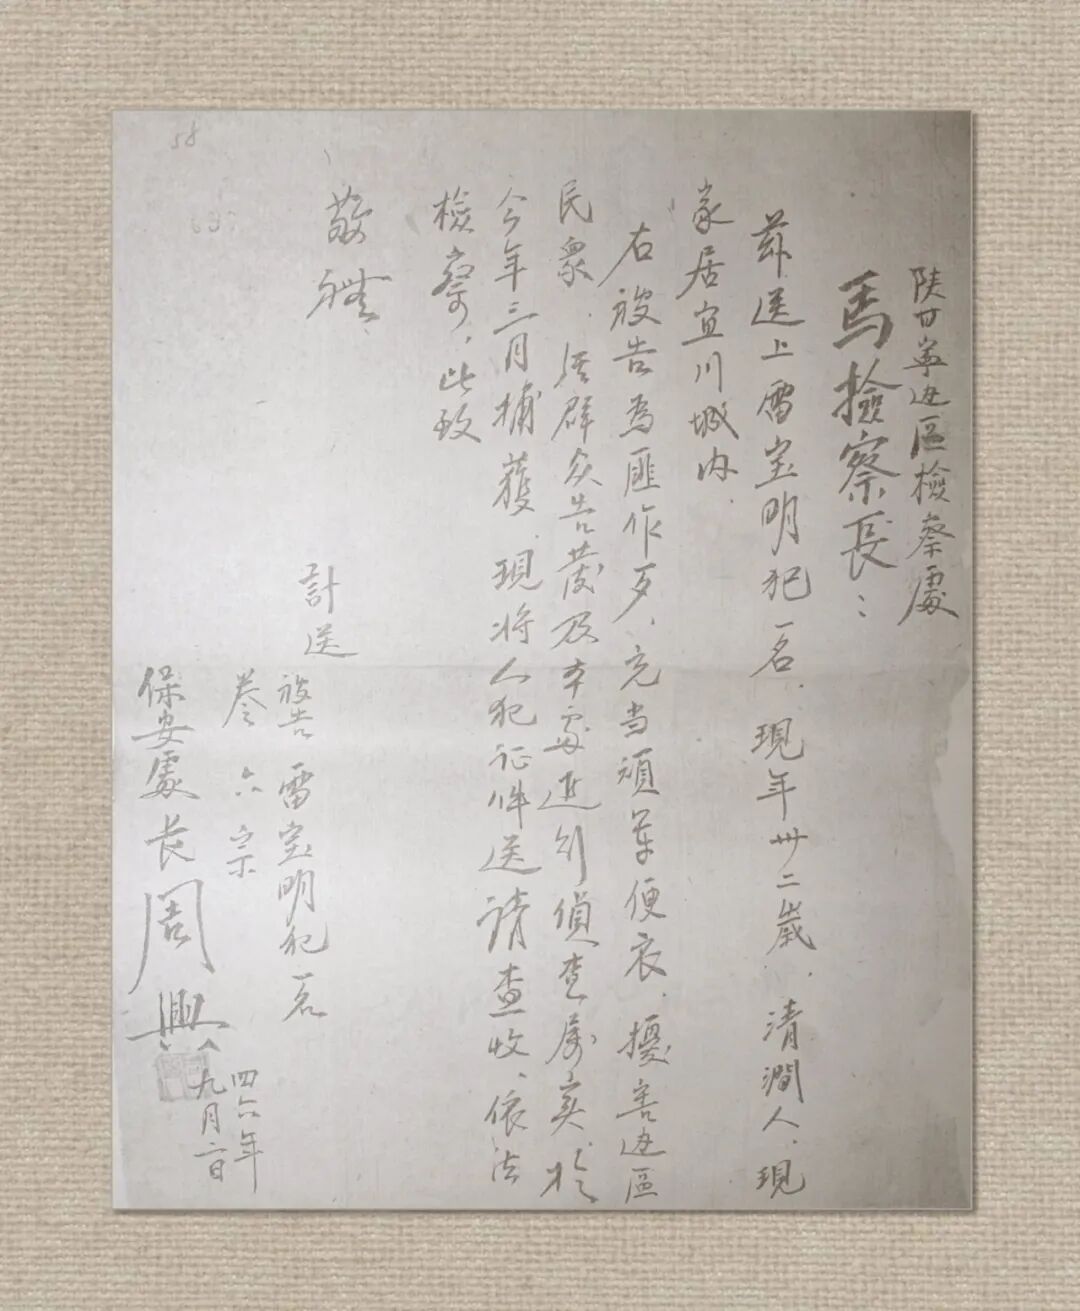 陕甘寧边區檢察處
馬檢察长：
茲送上雷宝明犯一名．現年卅二歲．清澗人．現
家居宜川城内．
右被告為匪作歹、充当頑軍便衣．擾害边區
民衆．经群众告發及本處進行偵查属实．於
今年三月捕獲．現将人犯証件送请查收、依法
檢察，此致
敬禮．
計送
被告雷宝明犯一名
卷六宗
保安處长周興
四六年
九月二日
58